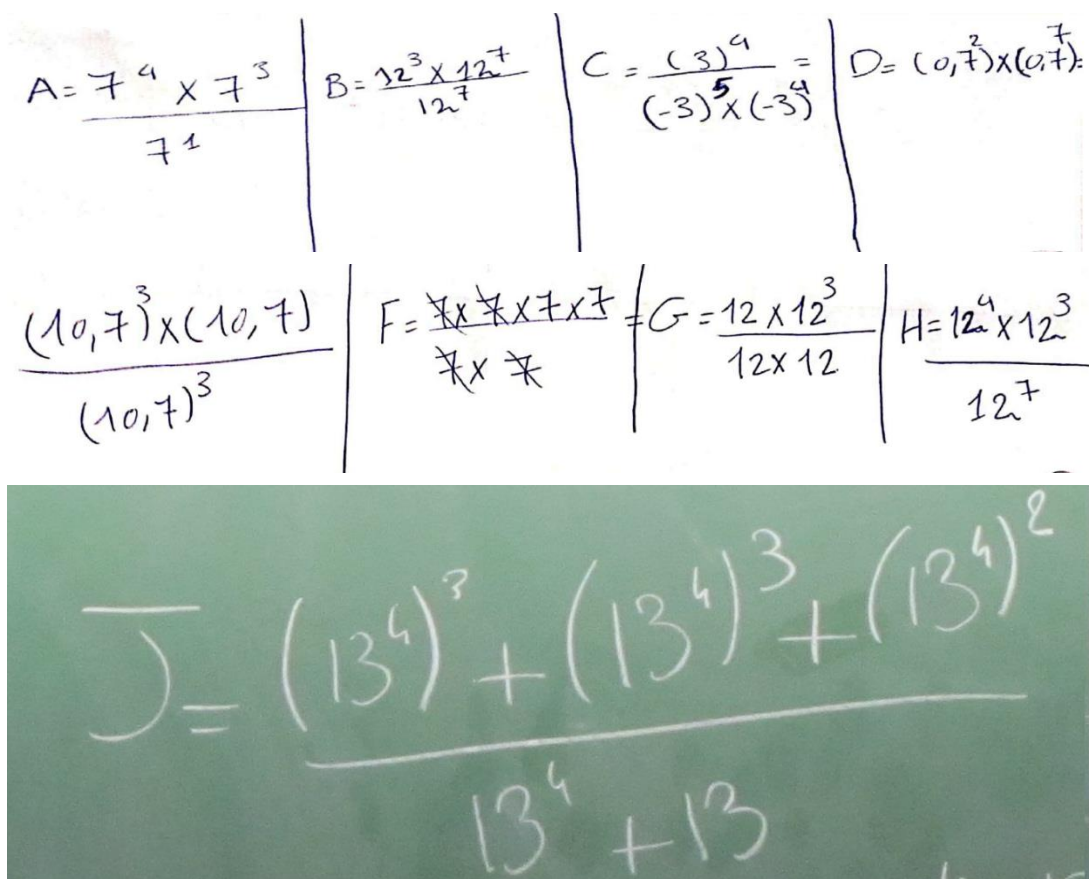 A = 7⁴ × 7³ / 7¹
B = 12³ × 12⁷ / 12⁷
C = (3)⁴ / (-3)⁵ × (-3)⁴ =
D = (0,7²) × (0,7)⁷ =
(10,7)³ × (10,7) / (10,7)³
F = 7 × 7 × 7 × 7 / 7 × 7 =
G = 12 × 12³ / 12 × 12
H = 12⁴ × 12³ / 12⁷
J = (13⁴)³ + (13⁴)³ + (13⁴)² / 13⁴ + 13